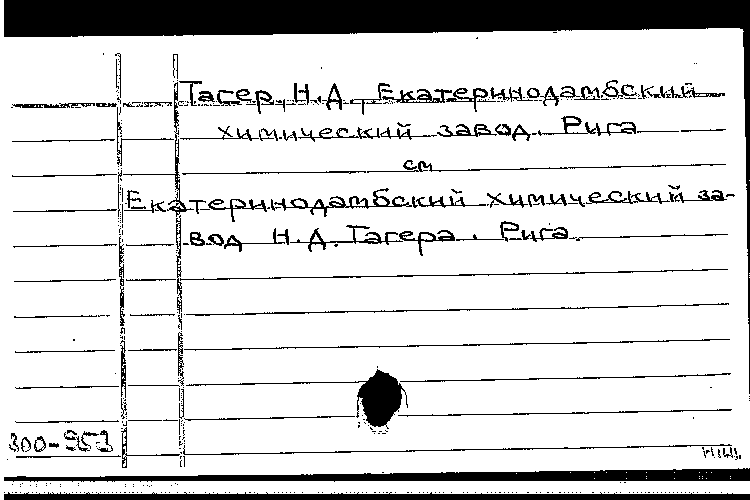 Тагер, Н.Д., Екатеринодамбский
химический завод. Рига
см
Екатеринодамбский химический за-
вод Н.Д. Тагера. Рига.
300-953